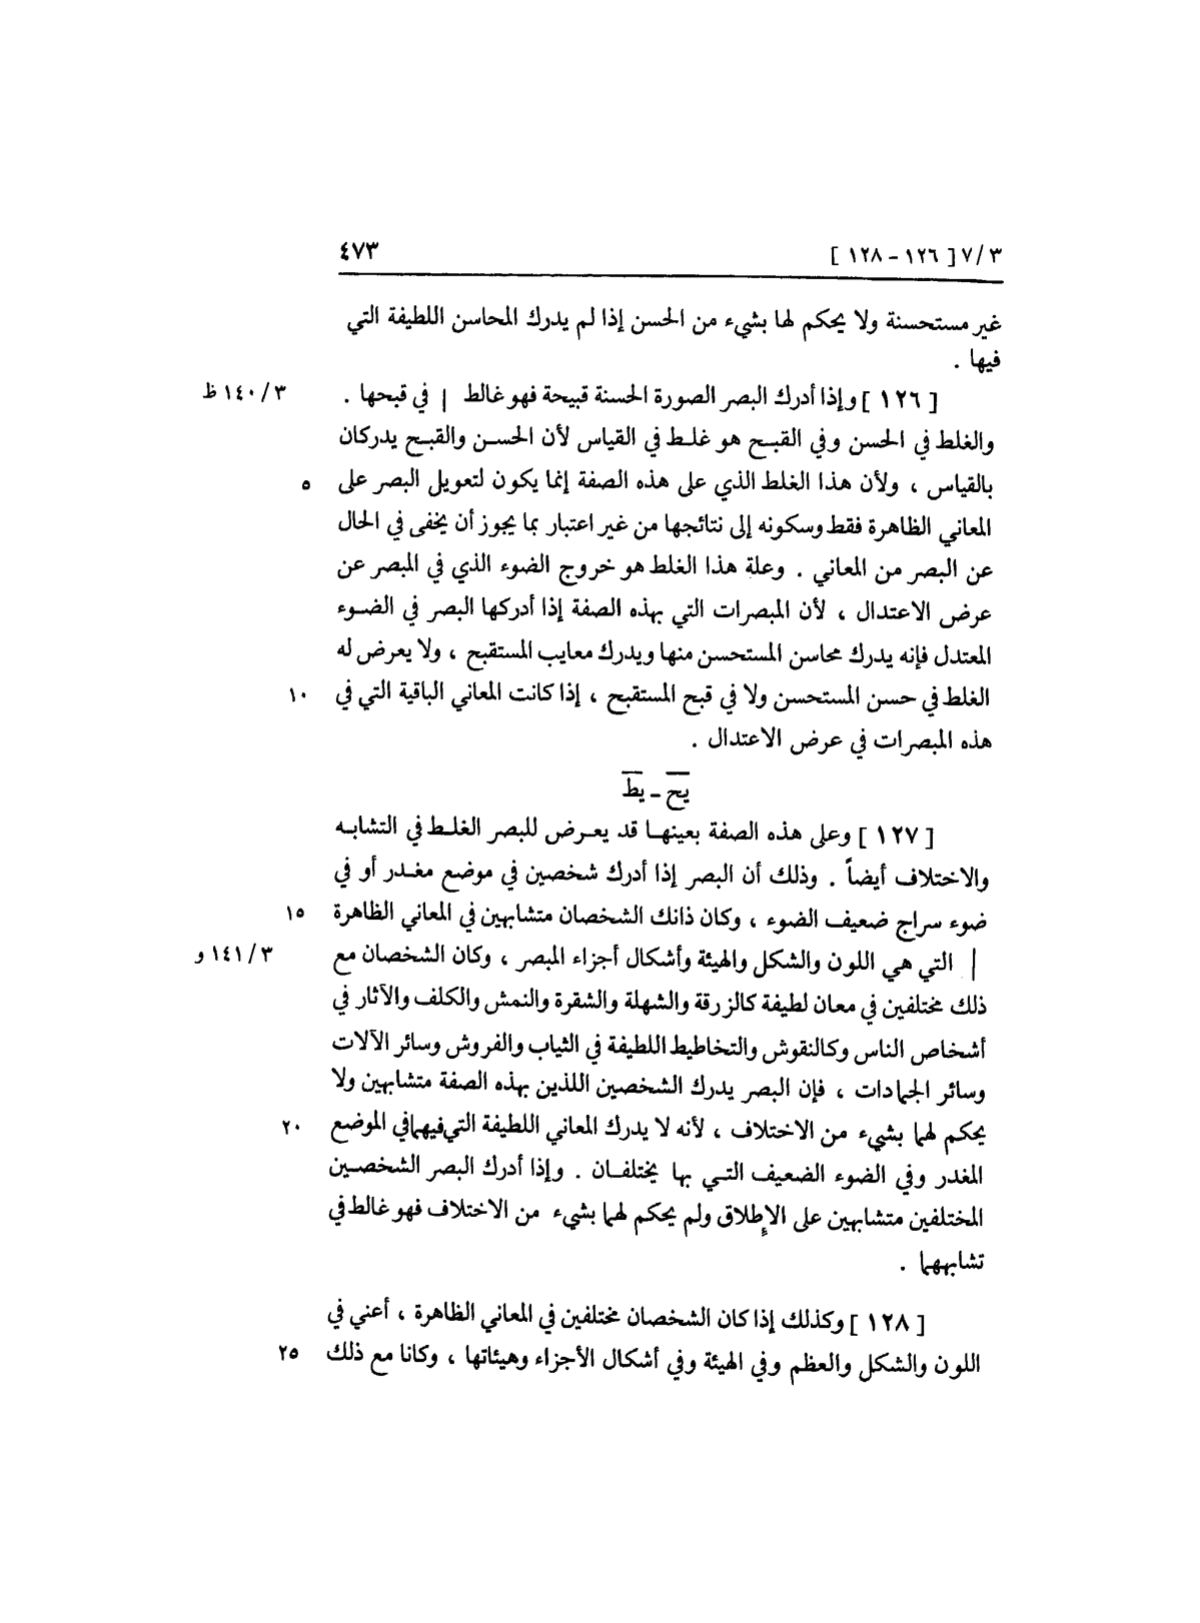 ٣ /٧ [ ١٢٦ – ١٢٨ ]
٤٧٣
غير مستحسنة ولا يحكم لها بشيء من الحسن إذا لم يدرك المحاسن اللطيفة التي
فيها .
[ ١٢٦ ] وإذا أدرك البصر الصورة الحسنة قبيحة فهو غالط | في قبحها .
٣ /١٤٠ ظ
والغلط في الحسن وفي القبح هو غلط في القياس لأن الحسن والقبح يدركان
بالقياس ، ولأن هذا الغلط الذي على هذه الصفة إنما يكون لتعويل البصر على
٥
المعاني الظاهرة فقط وسكونه إلى نتائجها من غير اعتبار بما يجوز أن يخفى في الحال
عن البصر من المعاني . وعلة هذا الغلط هو خروج الضوء الذي في المبصر عن
عرض الاعتدال ، لأن المبصرات التي بهذه الصفة إذا أدركها البصر في الضوء
المعتدل فإنه يدرك محاسن المستحسن منها ويدرك معايب المستقبح ، ولا يعرض له
الغلط في حسن المستحسن ولا في قبح المستقبح ، إذا كانت المعاني الباقية التي في
١٠
هذه المبصرات في عرض الاعتدال .
يح – يط
[ ١٢٧ ] وعلى هذه الصفة بعينها قد يعرض للبصر الغلط في التشابه
والاختلاف أيضاً . وذلك أن البصر إذا أدرك شخصين في موضع مغدر أو في
ضوء سراج ضعيف الضوء ، وكان ذانك الشخصان متشابهين في المعاني الظاهرة
١٥
| التي هي اللون والشكل والهيئة وأشكال أجزاء المبصر ، وكان الشخصان مع
٣ /١٤١ و
ذلك مختلفين في معان لطيفة كالزرقة والشهلة والشقرة والنمش والكلف والآثار في
أشخاص الناس وكالنقوش والتخاطيط اللطيفة في الثياب والفروش وسائر الآلات
وسائر الجمادات ، فإن البصر يدرك الشخصين اللذين بهذه الصفة متشابهين ولا
يحكم لهما بشيء من الاختلاف ، لأنه لا يدرك المعاني اللطيفة التي فيهما في الموضع
٢٠
المغدر وفي الضوء الضعيف التي بها يختلفان . وإذا أدرك البصر الشخصين
المختلفين متشابهين على الإطلاق ولم يحكم لهما بشيء من الاختلاف فهو غالط في
تشابههما .
[ ١٢٨ ] وكذلك إذا كان الشخصان مختلفين في المعاني الظاهرة ، أعني في
اللون والشكل والعظم وفي الهيئة وفي أشكال الأجزاء وهيئاتها ، وكانا مع ذلك
٢٥